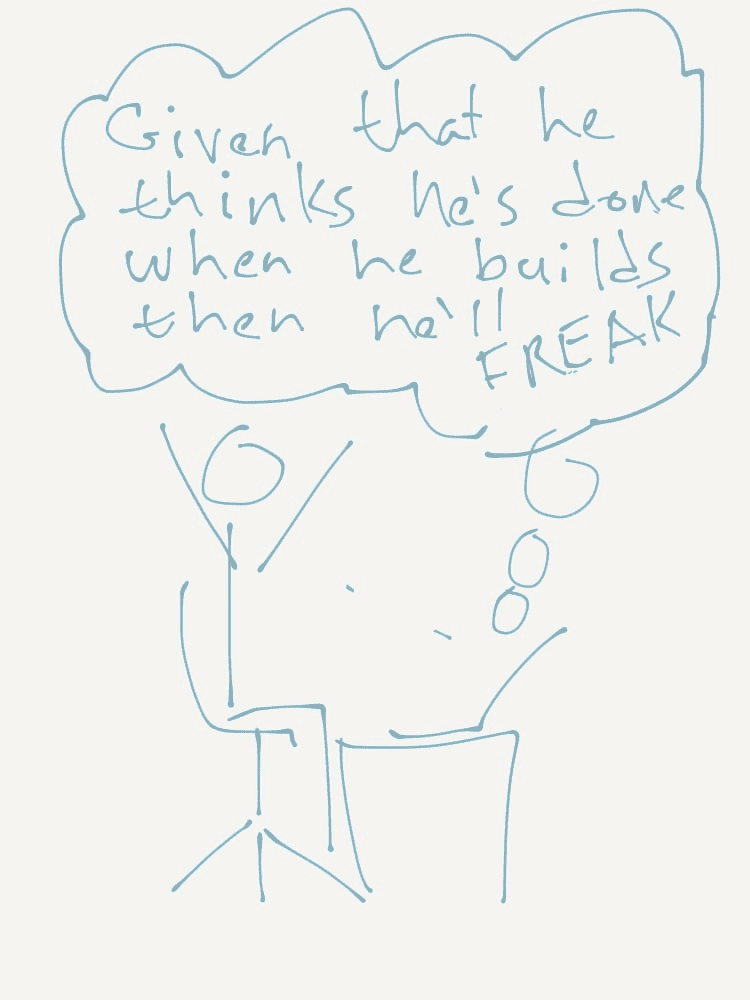 Given that he
thinks he's done
when he builds
then he'll
FREAK